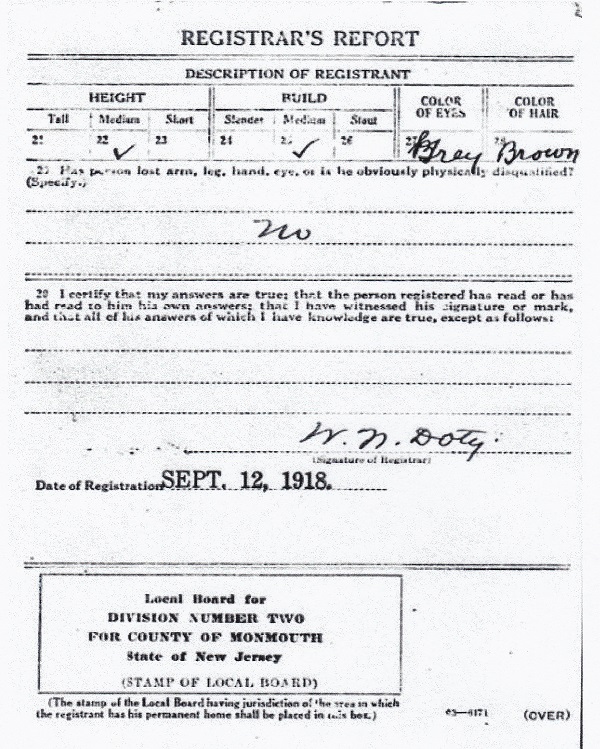 REGISTRAR'S REPORT
DESCRIPTION OF REGISTRANT
HEIGHT BUILD COLOR OF EYES COLOR OF HAIR
Tall Medium Short Slender Medium Stout
21 22 ✓ 23 24 25 ✓ 26 27 Grey 28 Brown
29 Has person lost arm, leg, hand, eye, or is he obviously physically disqualified?
(Specify.)
No
30 I certify that my answers are true; that the person registered has read or has
had read to him his own answers; that I have witnessed his signature or mark,
and that all of his answers of which I have knowledge are true, except as follows:
W. N. Doty
(Signature of Registrar)
Date of Registration SEPT. 12, 1918.
Local Board for
DIVISION NUMBER TWO
FOR COUNTY OF MONMOUTH
State of New Jersey
(STAMP OF LOCAL BOARD)
(The stamp of the Local Board having jurisdiction of the area in which
the registrant has his permanent home shall be placed in this box.)
03—6171 (OVER)